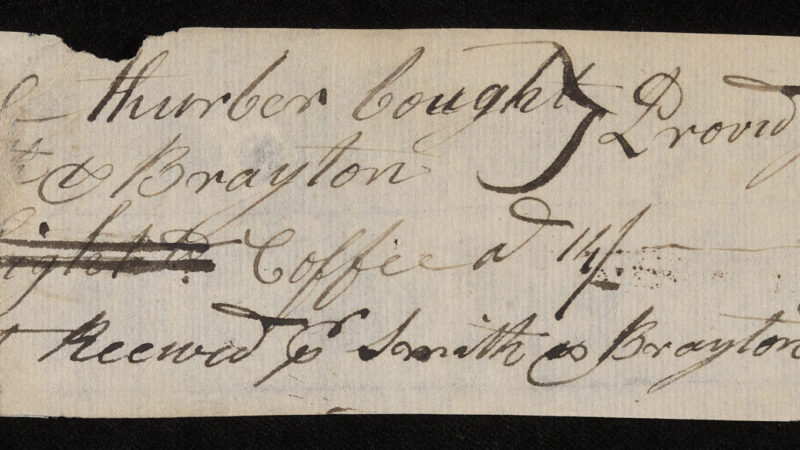 thurber bought } Provid
& Brayton
Coffee a 14/
Receivd pr Smith & Brayton